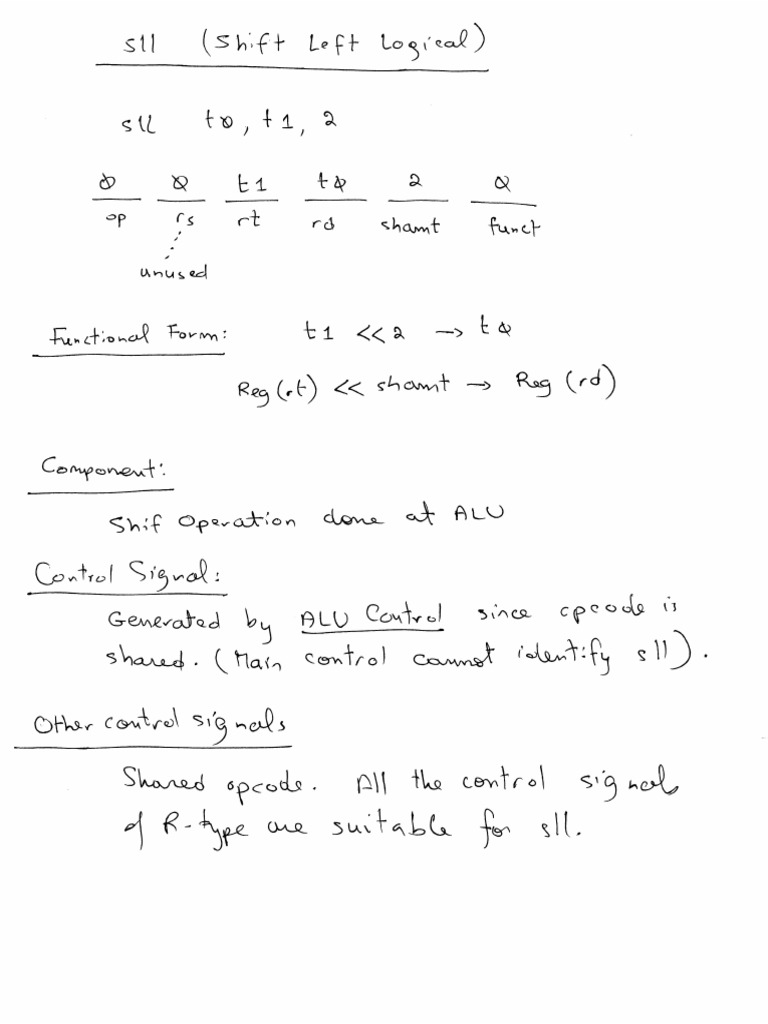 sll (Shift Left Logical)
sll t0, t1, 2
0 0 t1 t0 2 0
op rs rt rd shamt funct
unused
Functional Form: t1 << 2 → t0
Reg(rt) << shamt → Reg (rd)
Component:
Shif Operation done at ALU
Control Signal:
Generated by ALU Control since opcode is
shared. (Main control cannot identify sll).
Other control signals
Shared opcode. All the control signals
of R-type are suitable for sll.